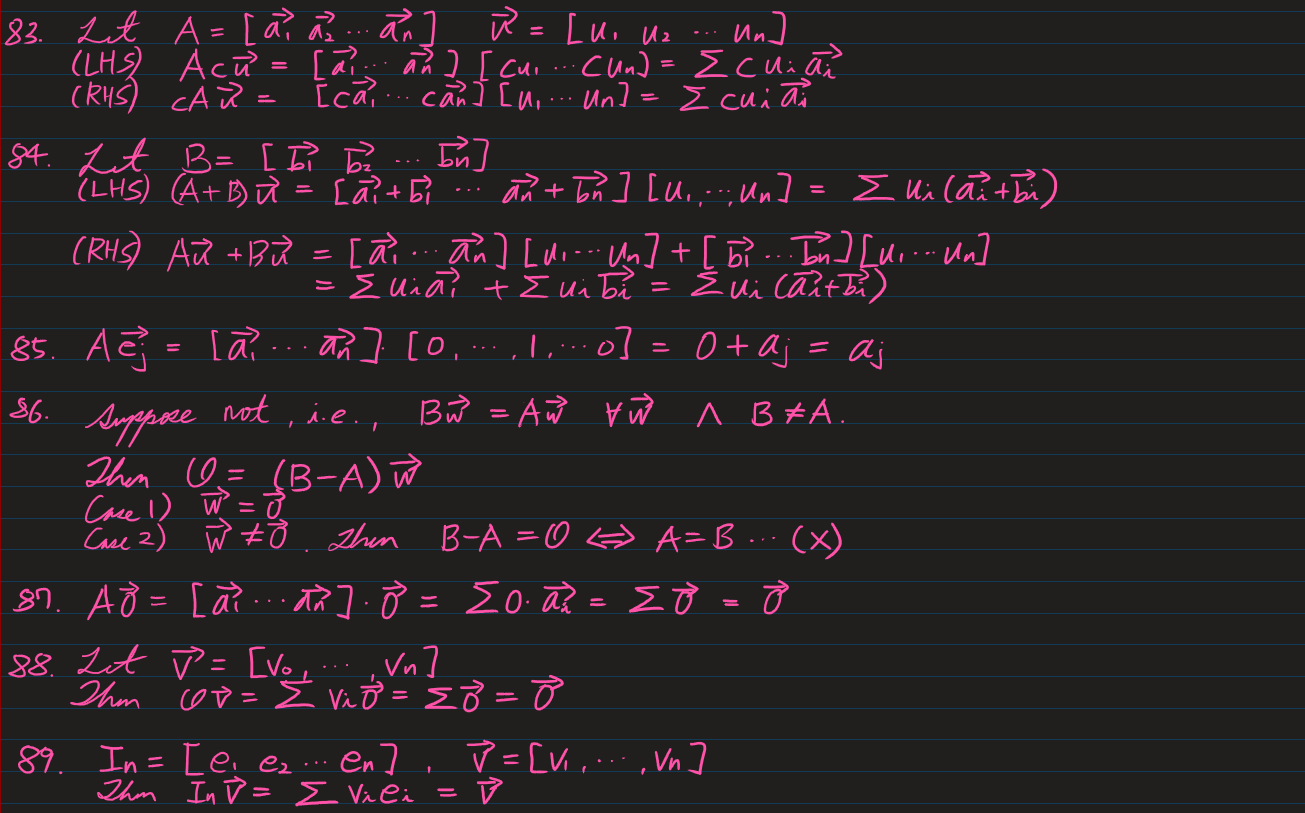 83. Let A = [a⃗₁ a⃗₂ ⋯ a⃗ₙ] u⃗ = [u₁ u₂ ⋯ uₙ]
(LHS) Acu⃗ = [a⃗₁ ⋯ a⃗ₙ] [cu₁ ⋯ cuₙ] = Σ cuᵢa⃗ᵢ
(RHS) cAu⃗ = [ca⃗₁ ⋯ ca⃗ₙ] [u₁ ⋯ uₙ] = Σ cuᵢa⃗ᵢ
84. Let B = [b⃗₁ b⃗₂ ⋯ b⃗ₙ]
(LHS) (A+B)u⃗ = [a⃗₁+b⃗₁ ⋯ a⃗ₙ+b⃗ₙ] [u₁, ⋯, uₙ] = Σ uᵢ(a⃗ᵢ+b⃗ᵢ)
(RHS) Au⃗ + Bu⃗ = [a⃗₁ ⋯ a⃗ₙ] [u₁ ⋯ uₙ] + [b⃗₁ ⋯ b⃗ₙ][u₁ ⋯ uₙ]
= Σ uᵢa⃗ᵢ + Σ uᵢb⃗ᵢ = Σ uᵢ(a⃗ᵢ+b⃗ᵢ)
85. Ae⃗ⱼ = [a⃗₁ ⋯ a⃗ₙ]· [0, ⋯, 1, ⋯ 0] = 0 + aⱼ = aⱼ
86. Suppose not, i.e., Bw⃗ = Aw⃗ ∀w⃗ ∧ B ≠ A.
Then O = (B−A)w⃗
Case 1) w⃗ = 0⃗
Case 2) w⃗ ≠ 0⃗. Then B−A = O ⟺ A=B ⋯ (X)
87. A0⃗ = [a⃗₁ ⋯ a⃗ₙ]·0⃗ = Σ0·a⃗ᵢ = Σ0⃗ = 0⃗
88. Let v⃗ = [v₀, ⋯, vₙ]
Then Ov⃗ = Σ vᵢ0⃗ = Σ0⃗ = 0⃗
89. Iₙ = [e₁ e₂ ⋯ eₙ], v⃗ = [v₁, ⋯, vₙ]
Then Iₙv⃗ = Σ vᵢeᵢ = v⃗